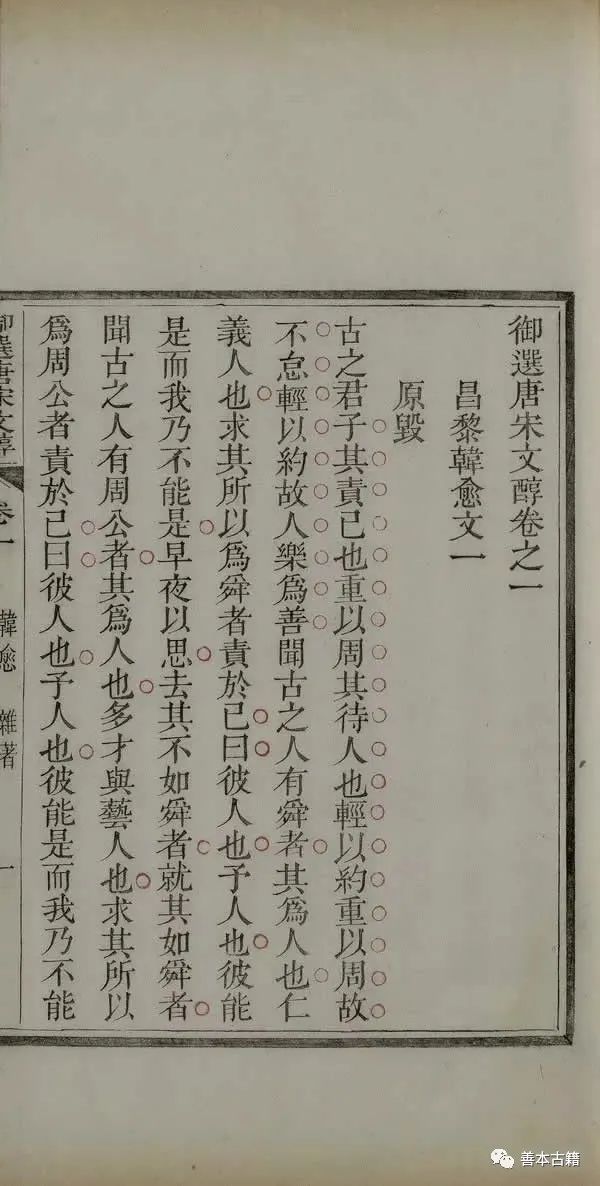 御選唐宋文醇卷之一
昌黎韓愈文一
原毀
古之君子其責已也重以周其待人也輕以約重以周故
不怠輕以約故人樂爲善聞古之人有舜者其爲人也仁
義人也求其所以爲舜者責於已曰彼人也予人也彼能
是而我乃不能是早夜以思去其不如舜者就其如舜者
聞古之人有周公者其爲人也多才與藝人也求其所以
爲周公者責於已曰彼人也予人也彼能是而我乃不能
御選唐宋文醇 卷一 韓愈 雜著 一
善本古籍